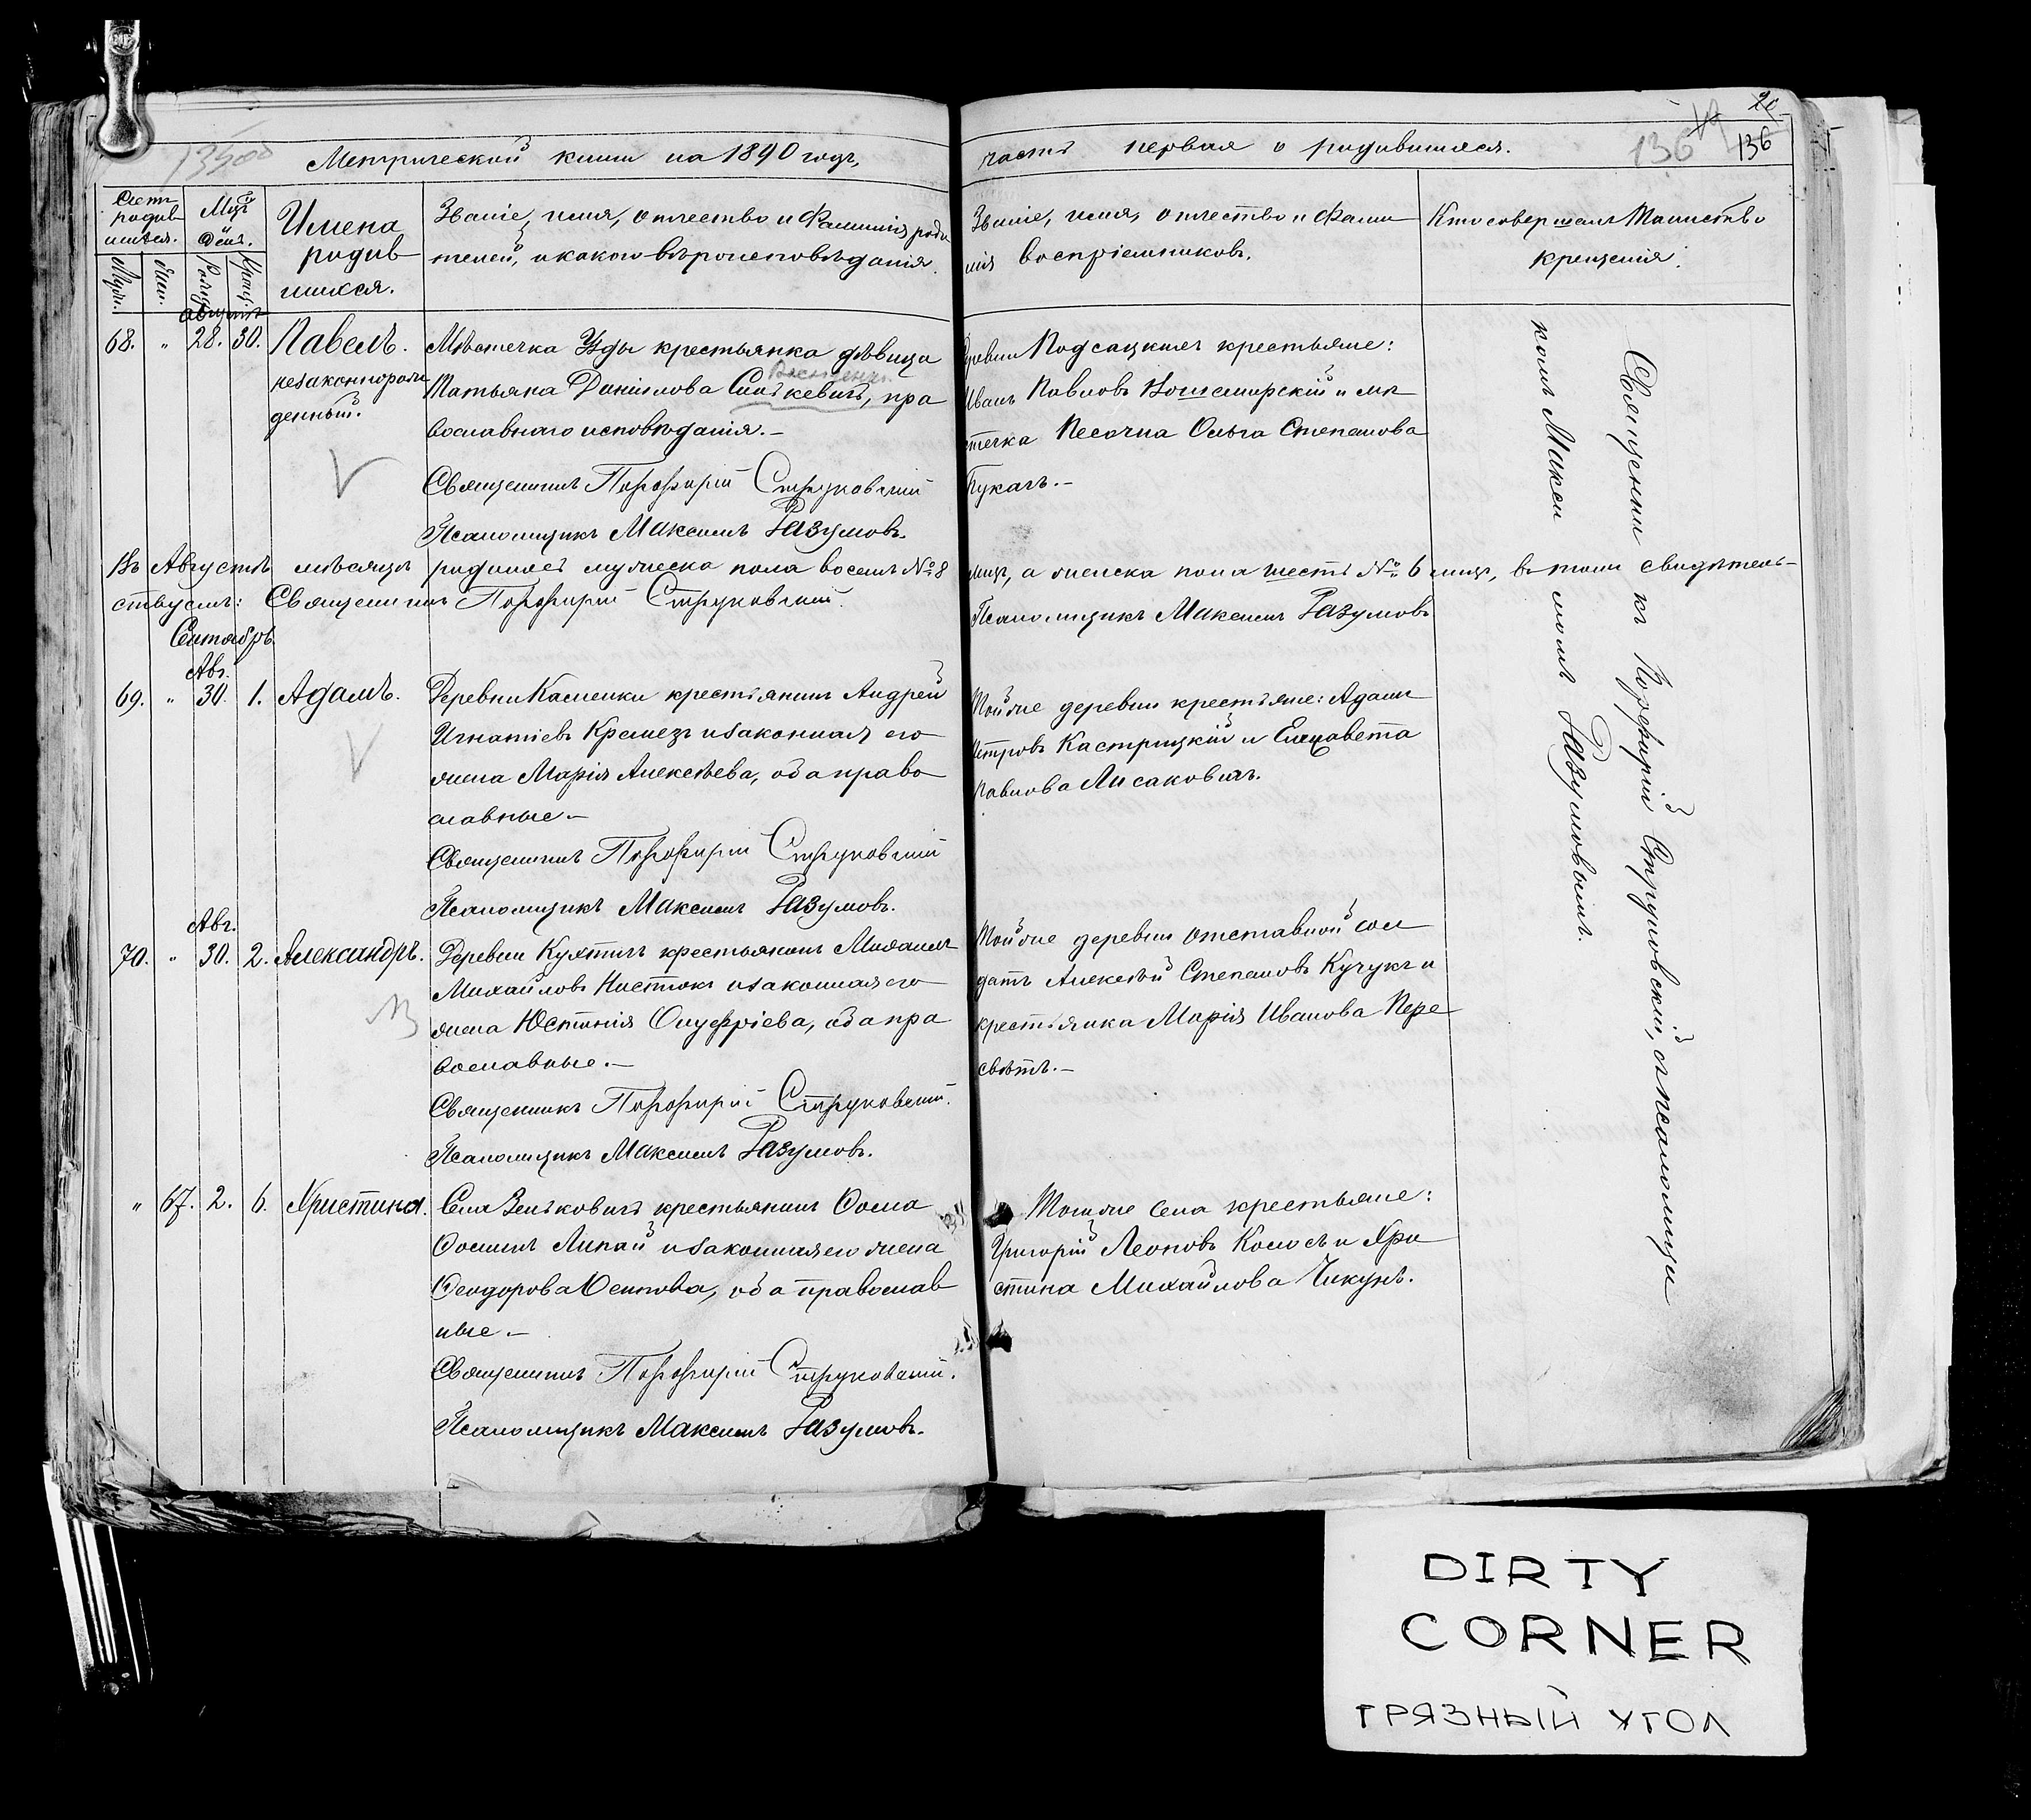 Метрической книги на 1890 годъ,
часть первая о родившихся.
136
136
Счетъ родив шихся.
Мцъ и день.
Имена родив шихся.
Званіе, имя, отчество и Фамилія роди
телей, и какого вѣроисповѣданія.
Званіе, имя, отчество и Фами
лія воспріемниковъ.
Кто совершалъ Таинство
крещенія.
Муж.
Жен.
Рожд.
Крещ.
Августъ
68. " 28. 30. Павелъ.
незаконнорож
денный.
Мѣстечка Узды крестьянка дѣвица
Татьяна Данилова Синькевичъ, пра
вославнаго исповѣданія.—
Священникъ Порфирій Струковскій
Псаломщикъ Максимъ Разумовъ.
Деревни Подсацкихъ крестьяне:
Иванъ Павловъ и мѣ
стечка Песочна Ольга Степанова
Кукачъ.—
Въ Августѣ мѣсяцѣ родилось мужеска пола восемь № 8 лицъ, а женска пола шесть № 6 лицъ, въ томъ свидѣтель-
ствуемъ: Священникъ Порфирій Струковскій.
Псаломщикъ Максимъ Разумовъ
Сентябрь
Авг.
69. " 30. 1. Адамъ.
Деревни Каменки крестьянинъ Андрей
Игнатіевъ Кремезъ и законная его
жена Марія Алексѣева, оба право
славные.—
Священникъ Порфирій Струковскій
Псаломщикъ Максимъ Разумовъ.
Той же деревни крестьяне: Адамъ
Петровъ Кастрицкій и Елисавета
Павлова Лисаковичъ.
Авг.
70. " 30. 2. Александръ.
Деревни Кухтичъ крестьянинъ Михаилъ
Михайловъ Шестокъ и законная его
жена Юстинія Онуфріева, оба пра
вославные.—
Священникъ Порфирій Струковскій.
Псаломщикъ Максимъ Разумовъ.
Той же деревни отставной сол
датъ Алексѣй Степановъ Кучукъ и
крестьянка Марія Иванова Пере
свѣтъ.—
" 67. 2. 6. Христина.
Села Зеньковичъ крестьянинъ Ѳома
Ѳоминъ Липай и законная его жена
Ѳеодора Осипова, оба православ
ные.—
Священникъ Порфирій Струковскій.
Псаломщикъ Максимъ Разумовъ.
Того же села крестьяне:
Григорій Леоновъ Колосъ и Хри
стина Михайлова Чикунъ.
Священникъ Порфирій Струковскій, съ псаломщи
комъ Максимомъ Разумовымъ.
DIRTY
CORNER
ГРЯЗНЫЙ УГОЛ